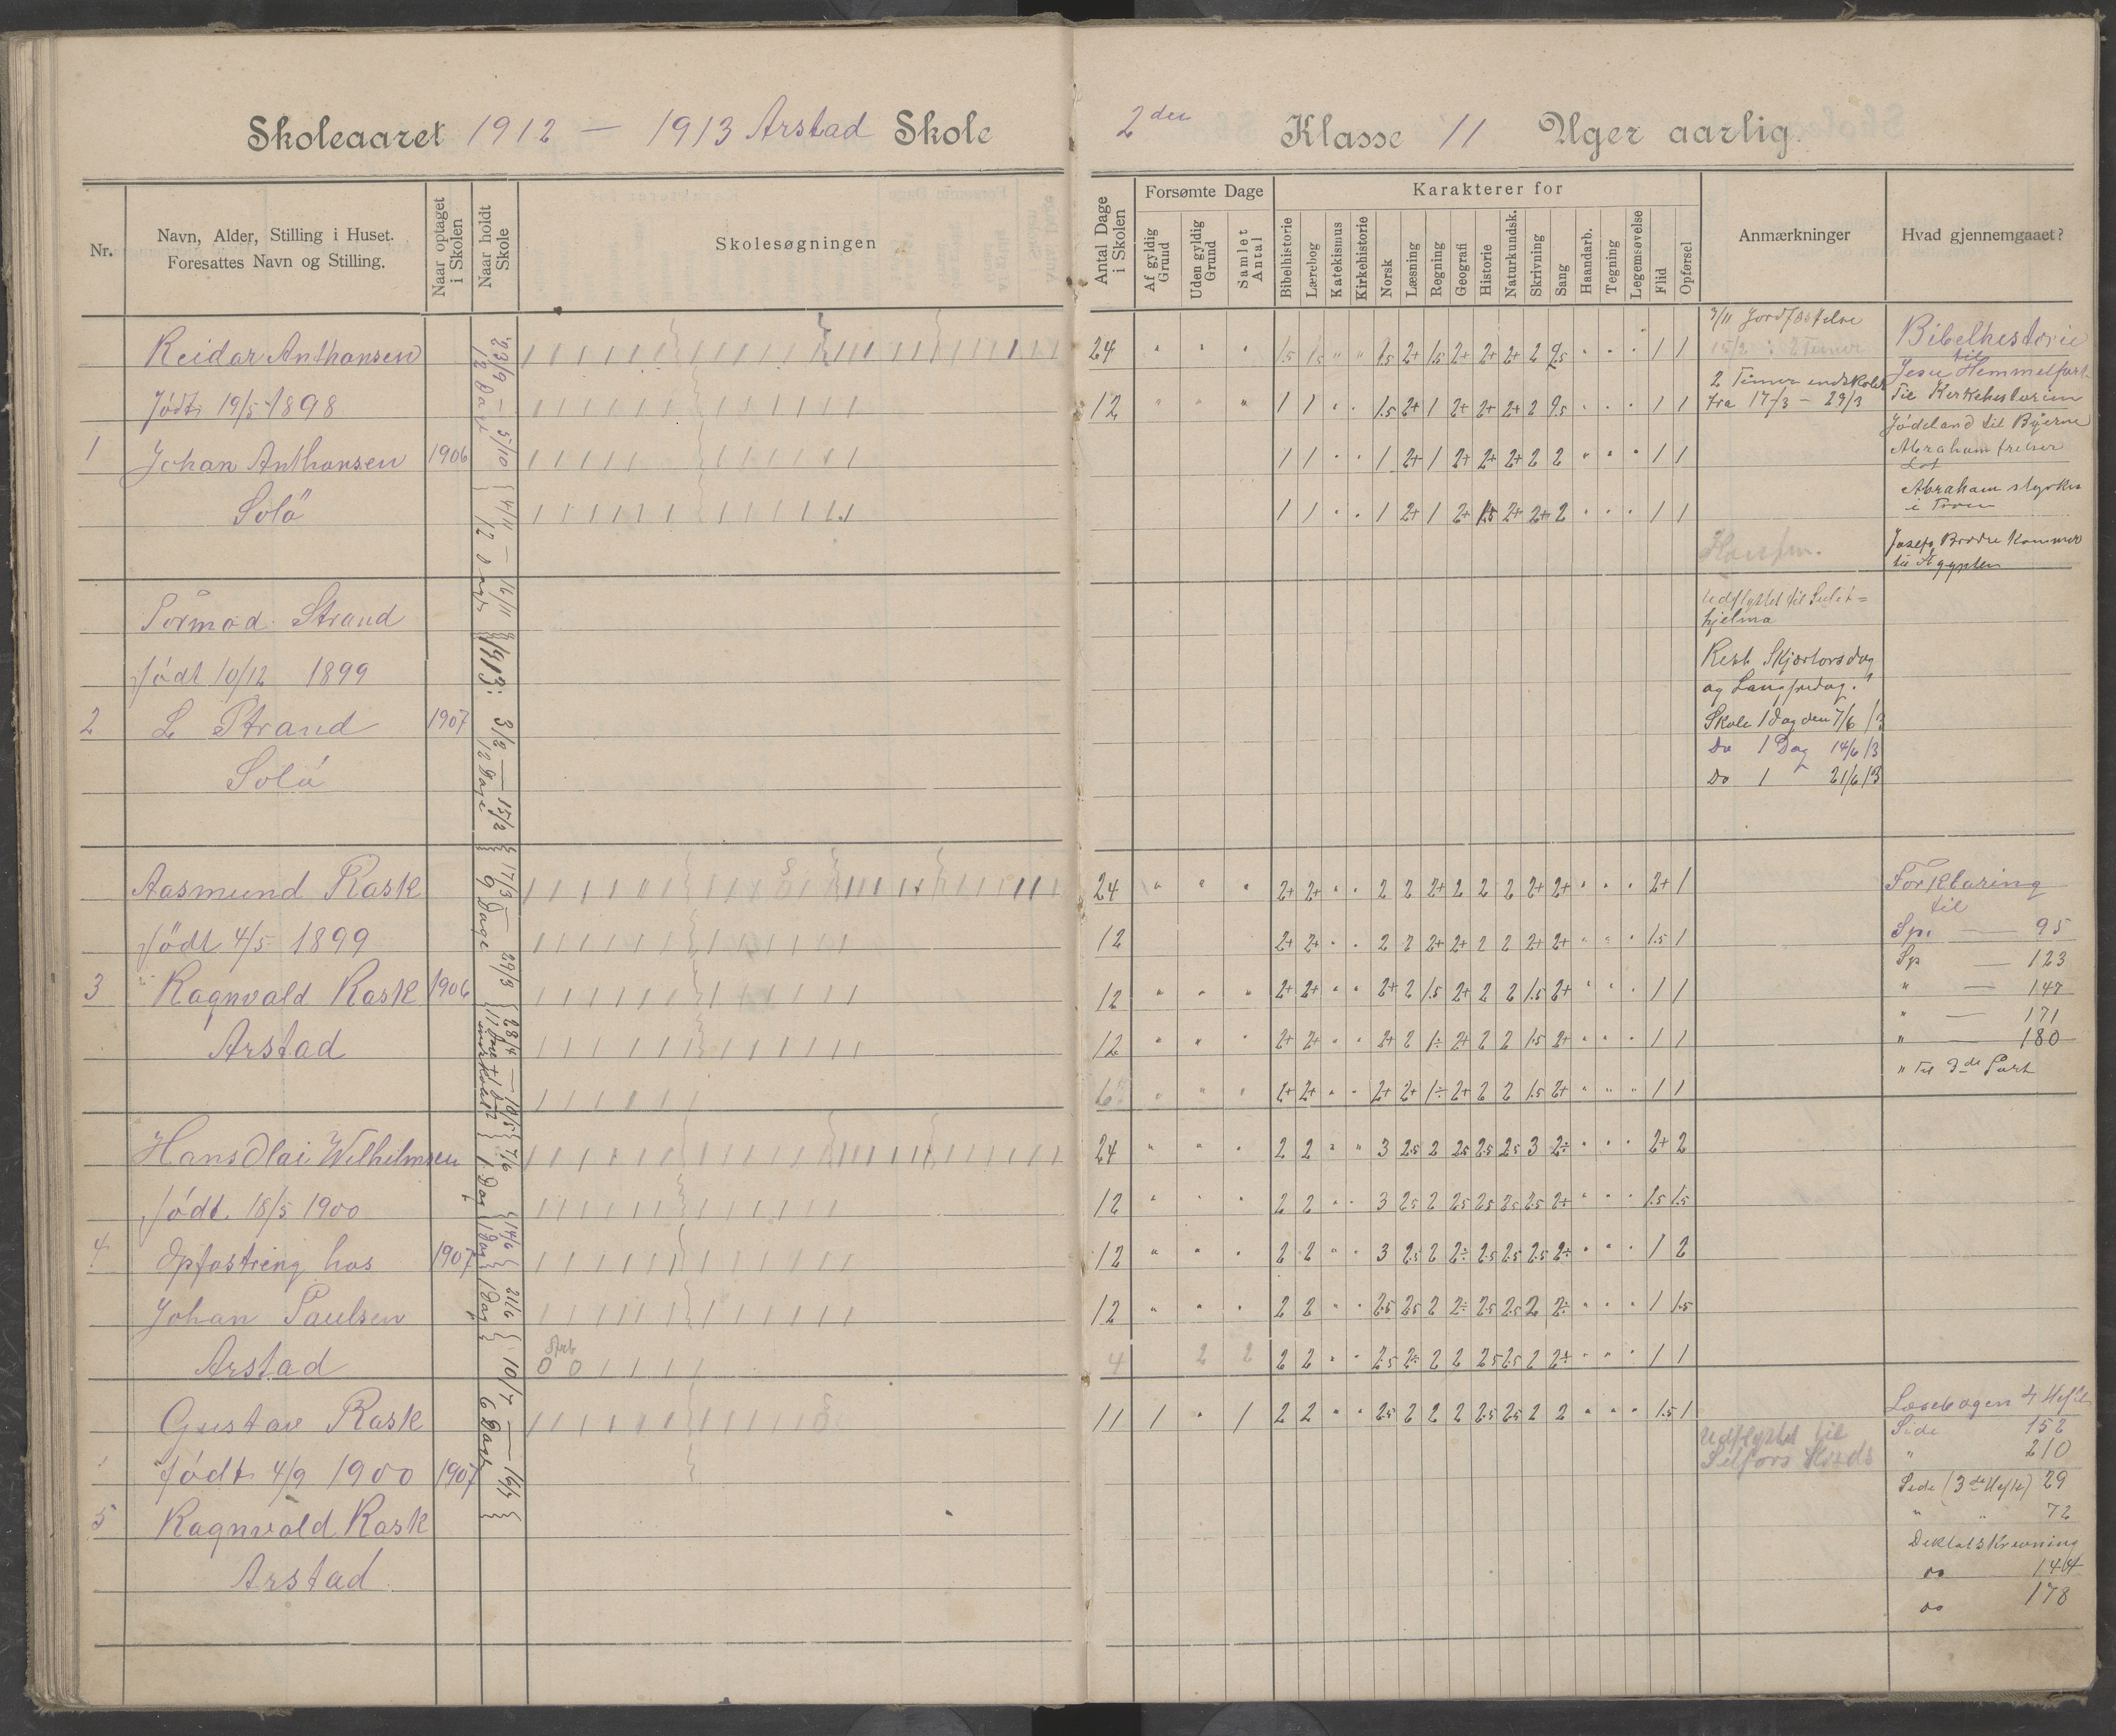 Skoleaaret 1912 — 1913 Arstad Skole
2den Klasse 11 Uger aarlig.
Nr.
Navn, Alder, Stilling i Huset.
Foresattes Navn og Stilling.
Naar optaget i Skolen
Naar holdt Skole
Skolesøgningen
Antal Dage i Skolen
Forsømte Dage
Af gyldig Grund
Uden gyldig Grund
Samlet Antal
Karakterer for
Bibelhistorie
Lærebog
Katekismus
Kirkehistorie
Norsk
Læsning
Regning
Geografi
Historie
Naturkundsk.
Skrivning
Sang
Haandarb.
Tegning
Legemsøvelse
Flid
Opførsel
Anmærkninger
Hvad gjennemgaaet?
23/9 — 5/10 12 Dage
4/11 — 16/11 12 Dage
1913: 3/2 — 15/2 12 Dage
17/3 — 29/3 9 Dage
28/4 — 10/5 11 Dage
7/6 1 Dag
14/6 1 Dag
21/6 1 Dag
10/7 — 16/7 6 Dage
1
Reidar Anthonsen
Født 19/5 1898
Johan Anthonsen 1906
Solö
24 " " " 1.5 1.5 " " 1.5 2+ 1.5 2+ 2+ 2+ 2 2.5 " " " 1 1
12 " " " 1 1 " " 1.5 2+ 1 2+ 2+ 2+ 2 2.5 " " " 1 1
1 1 " " 1 2+ 1 2+ 2+ 2+ 2 2 " " " 1 1
1 1 " " 1 2+ 1 2+ 1.5 2+ 2+ 2 " " " 1 1
7/11 Jordfæstelse
15/2 : 2 Timer
2 Timer
fra 17/3 — 29/3
Bibelhestorie
til
Jesu Hemmelfart
Til Kerkehestorien
Jødeland til Byerne
Abraham frelser
Lot
Abraham styrkes
i Troen
Josefs Brødre kommer
til Ægypten
2
Tormod Strand
født 10/12 1899
L Strand 1907
Solö
Udflyttet til Sulit=
hjelma
Rest Skjærtorsdag
og Langfredag.
Skole 1 Dag den 7/6 13
Do 1 Dag 14/6 13
Do 1 " 21/6 13
3
Aasmund Rask
født 4/5 1899
Ragnvald Rask 1906
Arstad
24 " " " 2+ 2+ " " 2 2 2+ 2 2 2 2+ 2+ " " " 2+ 1
12 2+ 2+ " " 2 2 2+ 2+ 2 2 2+ 2+ " " " 1.5 1
12 " " " 2+ 2+ " " 2+ 2 1.5 2+ 2 2 1.5 2+ " " " 1 1
12 " " " 2+ 2+ " " 2+ 2 1÷ 2+ 2 2 1.5 2+ " " " 1 1
6 " " " 2+ 2+ " " 2+ 2+ 1÷ 2+ 2 2 1.5 2+ " " " 1 1
Forklaring
til
Sp. — 95
Sp — 123
" — 147
" — 171
" — 180
" til 3de Part
4
Hans Olai Wilhelmsen
født. 18/5 1900
Opfostring hos 1907
Johan Paulsen
Arstad
24 " " " 2 2 " " 3 2.5 2 2.5 2.5 2.5 3 2÷ " " " 2+ 2
12 " " " 2 2 " " 3 2.5 2 2.5 2.5 2.5 2.5 2+ " " " 1.5 1.5
12 " " " 2 2 " " 3 2.5 2 2÷ 2.5 2.5 2.5 2÷ " " " 1 2
12 " " " 2 2 " " 2.5 2.5 2 2÷ 2.5 2.5 2 2÷ " " " 1 1.5
0 0
4 2 2 2 2 " " 2.5 2÷ 2 2 2.5 2.5 2 2÷ " " " 1 1
5
Gustav Rask
født 4/9 1900 1907
Ragnvald Rask
Arstad
11 1 " 1 2 2 " " 2.5 2 2 2 2.5 2.5 2 2 " " " 1.5 1
Udflyttet til
Selfors
Læsebogen 4 Hefte
Side 152
" 210
Side (3de Hefte) 29
" " 72
Diktatskrivning
do 144
do 178